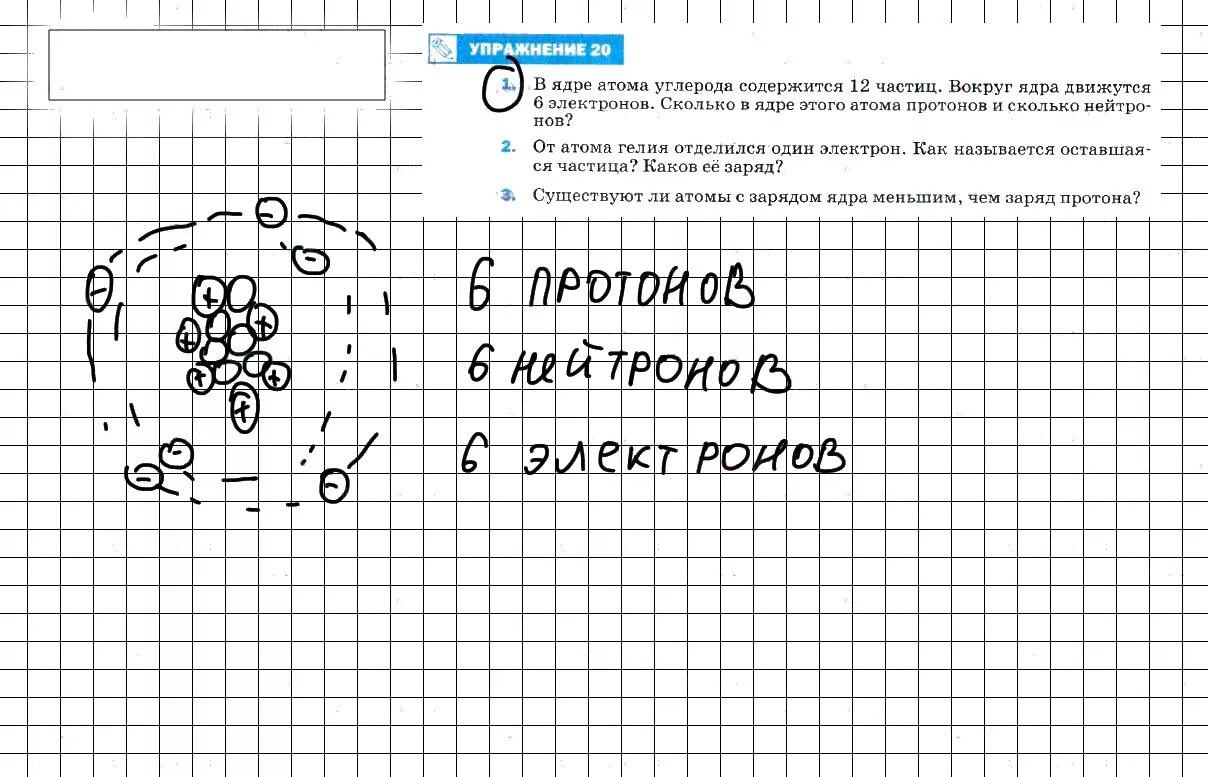 УПРАЖНЕНИЕ 20
1. В ядре атома углерода содержится 12 частиц. Вокруг ядра движутся
6 электронов. Сколько в ядре этого атома протонов и сколько нейтро-
нов?
2. От атома гелия отделился один электрон. Как называется оставшая-
ся частица? Каков её заряд?
3. Существуют ли атомы с зарядом ядра меньшим, чем заряд протона?
6 ПРОТОНОВ
6 НЕЙТРОНОВ
6 ЭЛЕКТРОНОВ